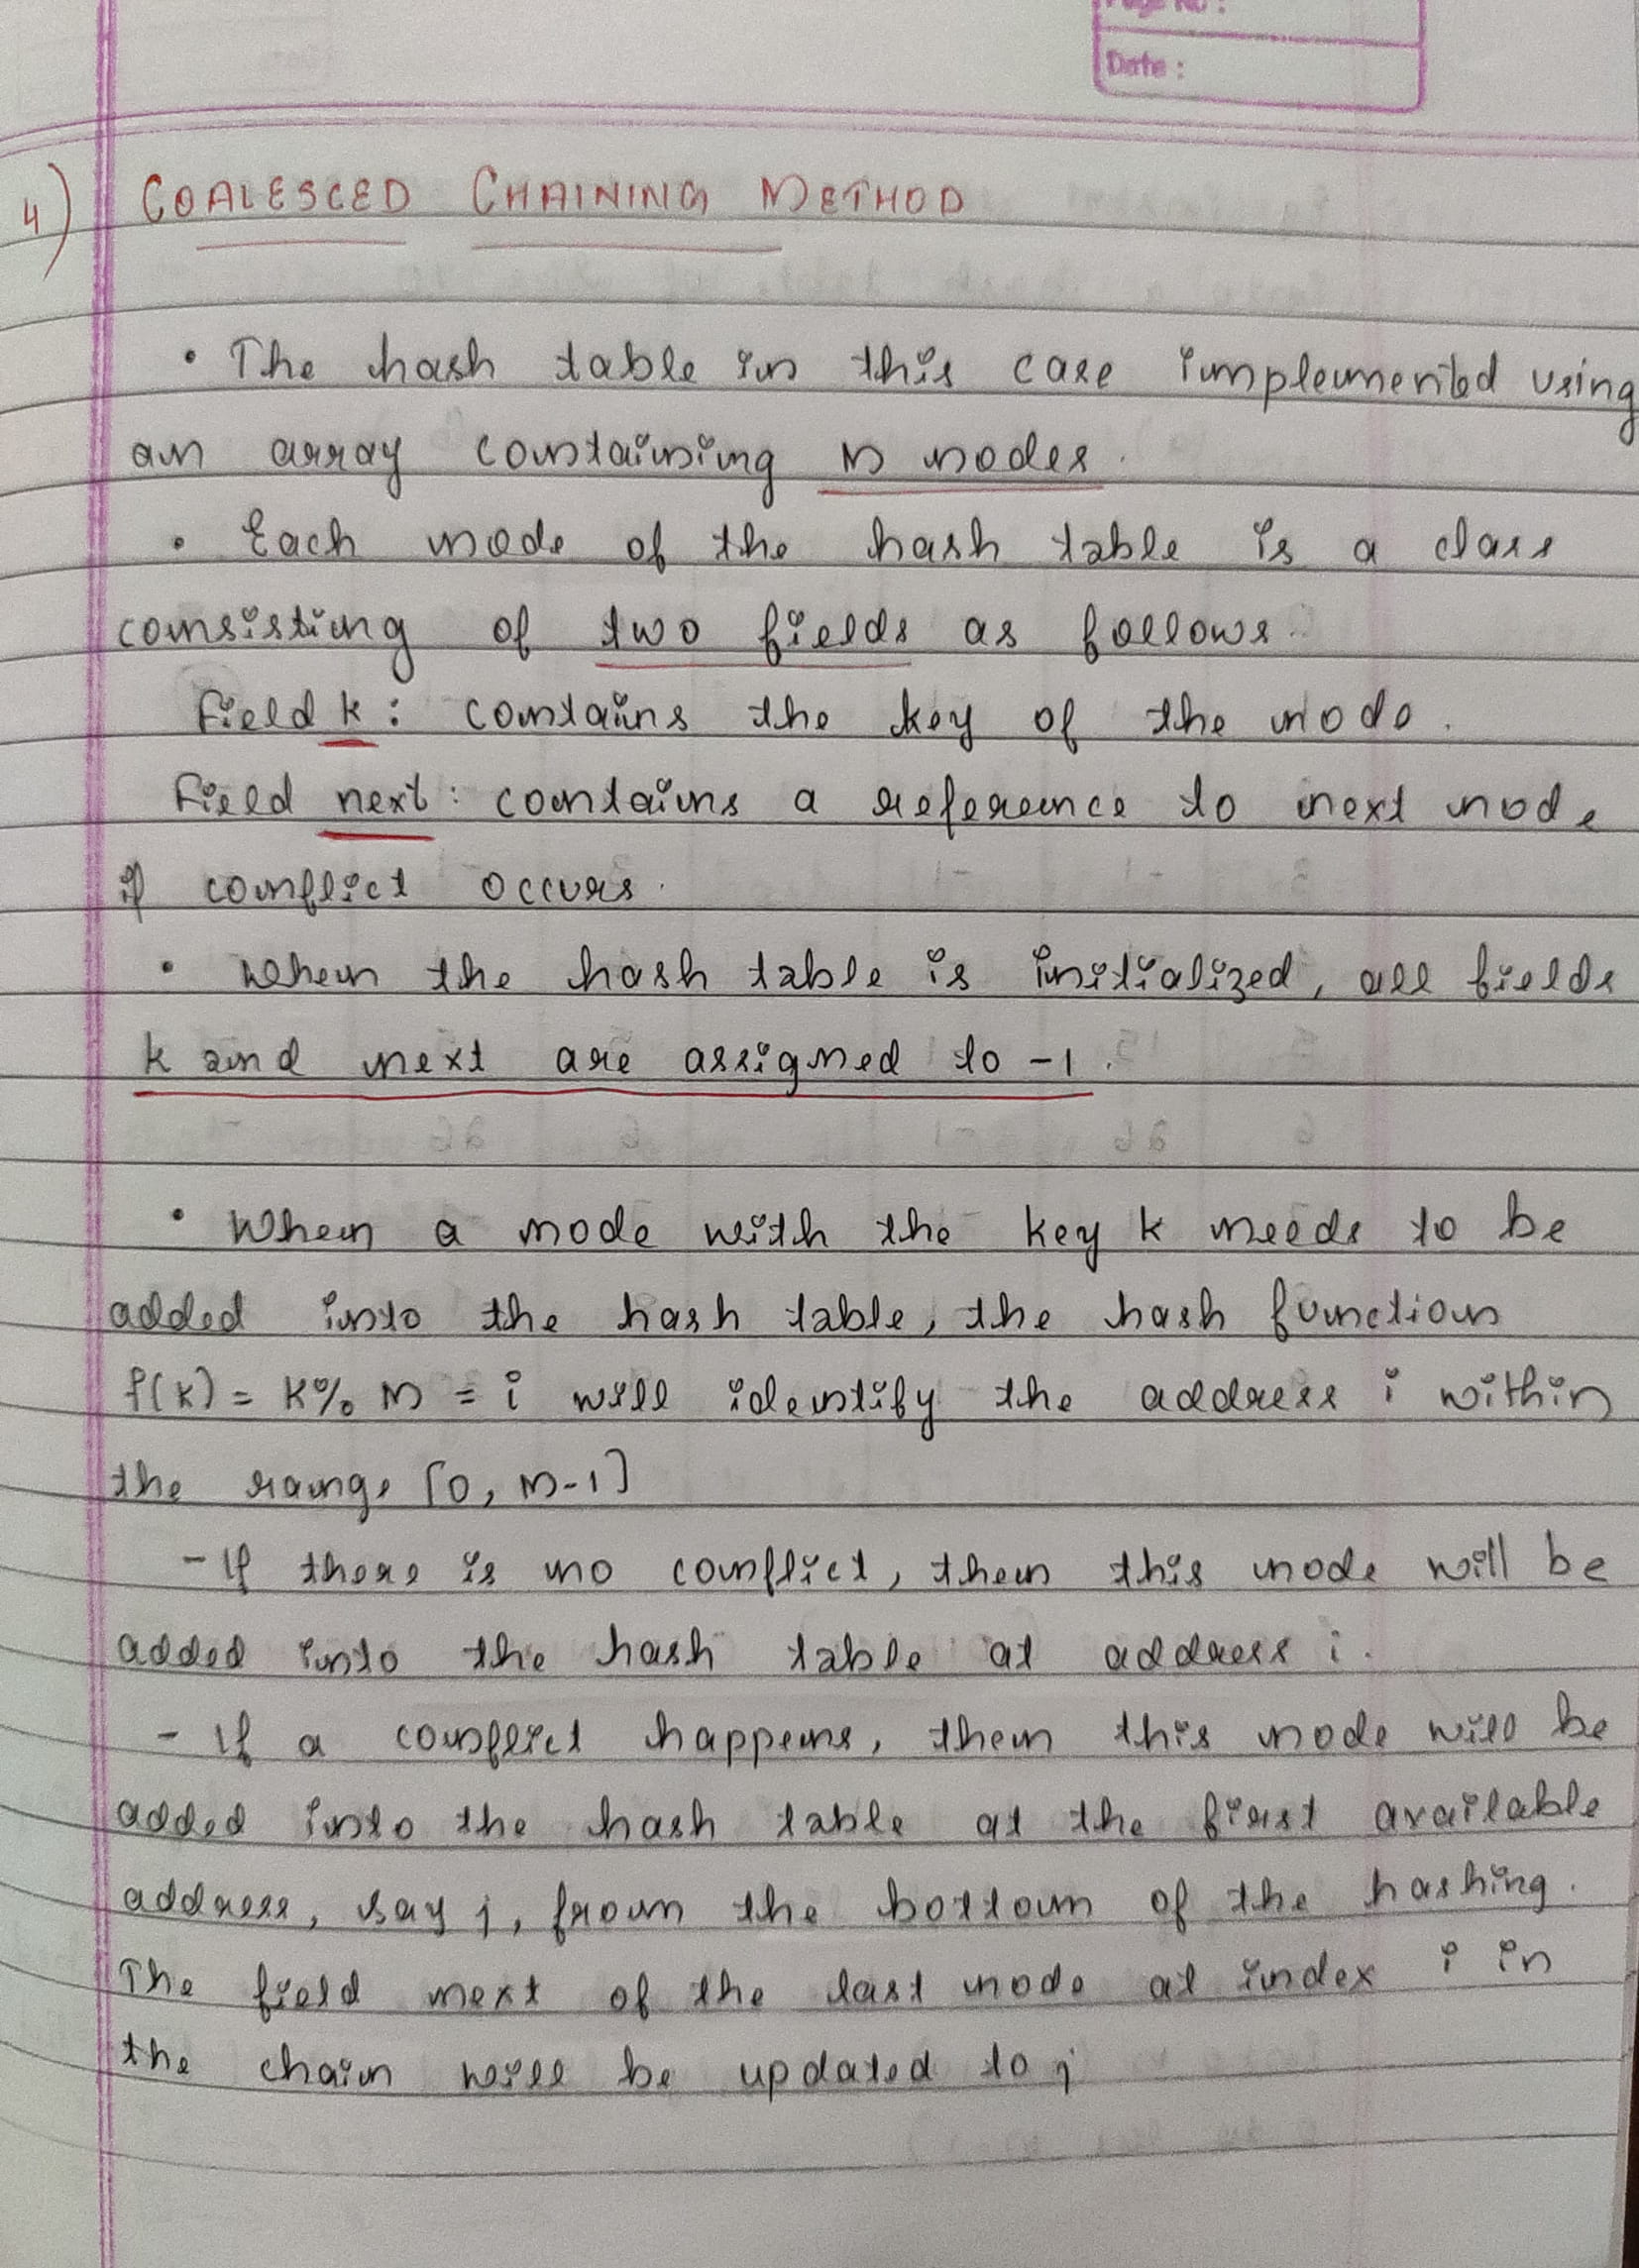 Page No :
Date :
4) COALESCED CHAINING METHOD
• The hash table in this case implemented using
an array containing M nodes.
• Each node of the hash table is a class
consisting of two fields as follows:
Field k : contains the key of the node.
Field next : contains a reference to next node
if conflict occurs.
• When the hash table is initialized, all fields
k and next are assigned to -1.
• When a node with the key k needs to be
added into the hash table, the hash function
f(k) = K% M = i will identify the address i within
the range [0, M-1]
- If there is no conflict, then this node will be
added into the hash table at address i.
- If a conflict happens, then this node will be
added into the hash table at the first available
address, say j, from the bottom of the hashing.
The field next of the last node at index i in
the chain will be updated to j